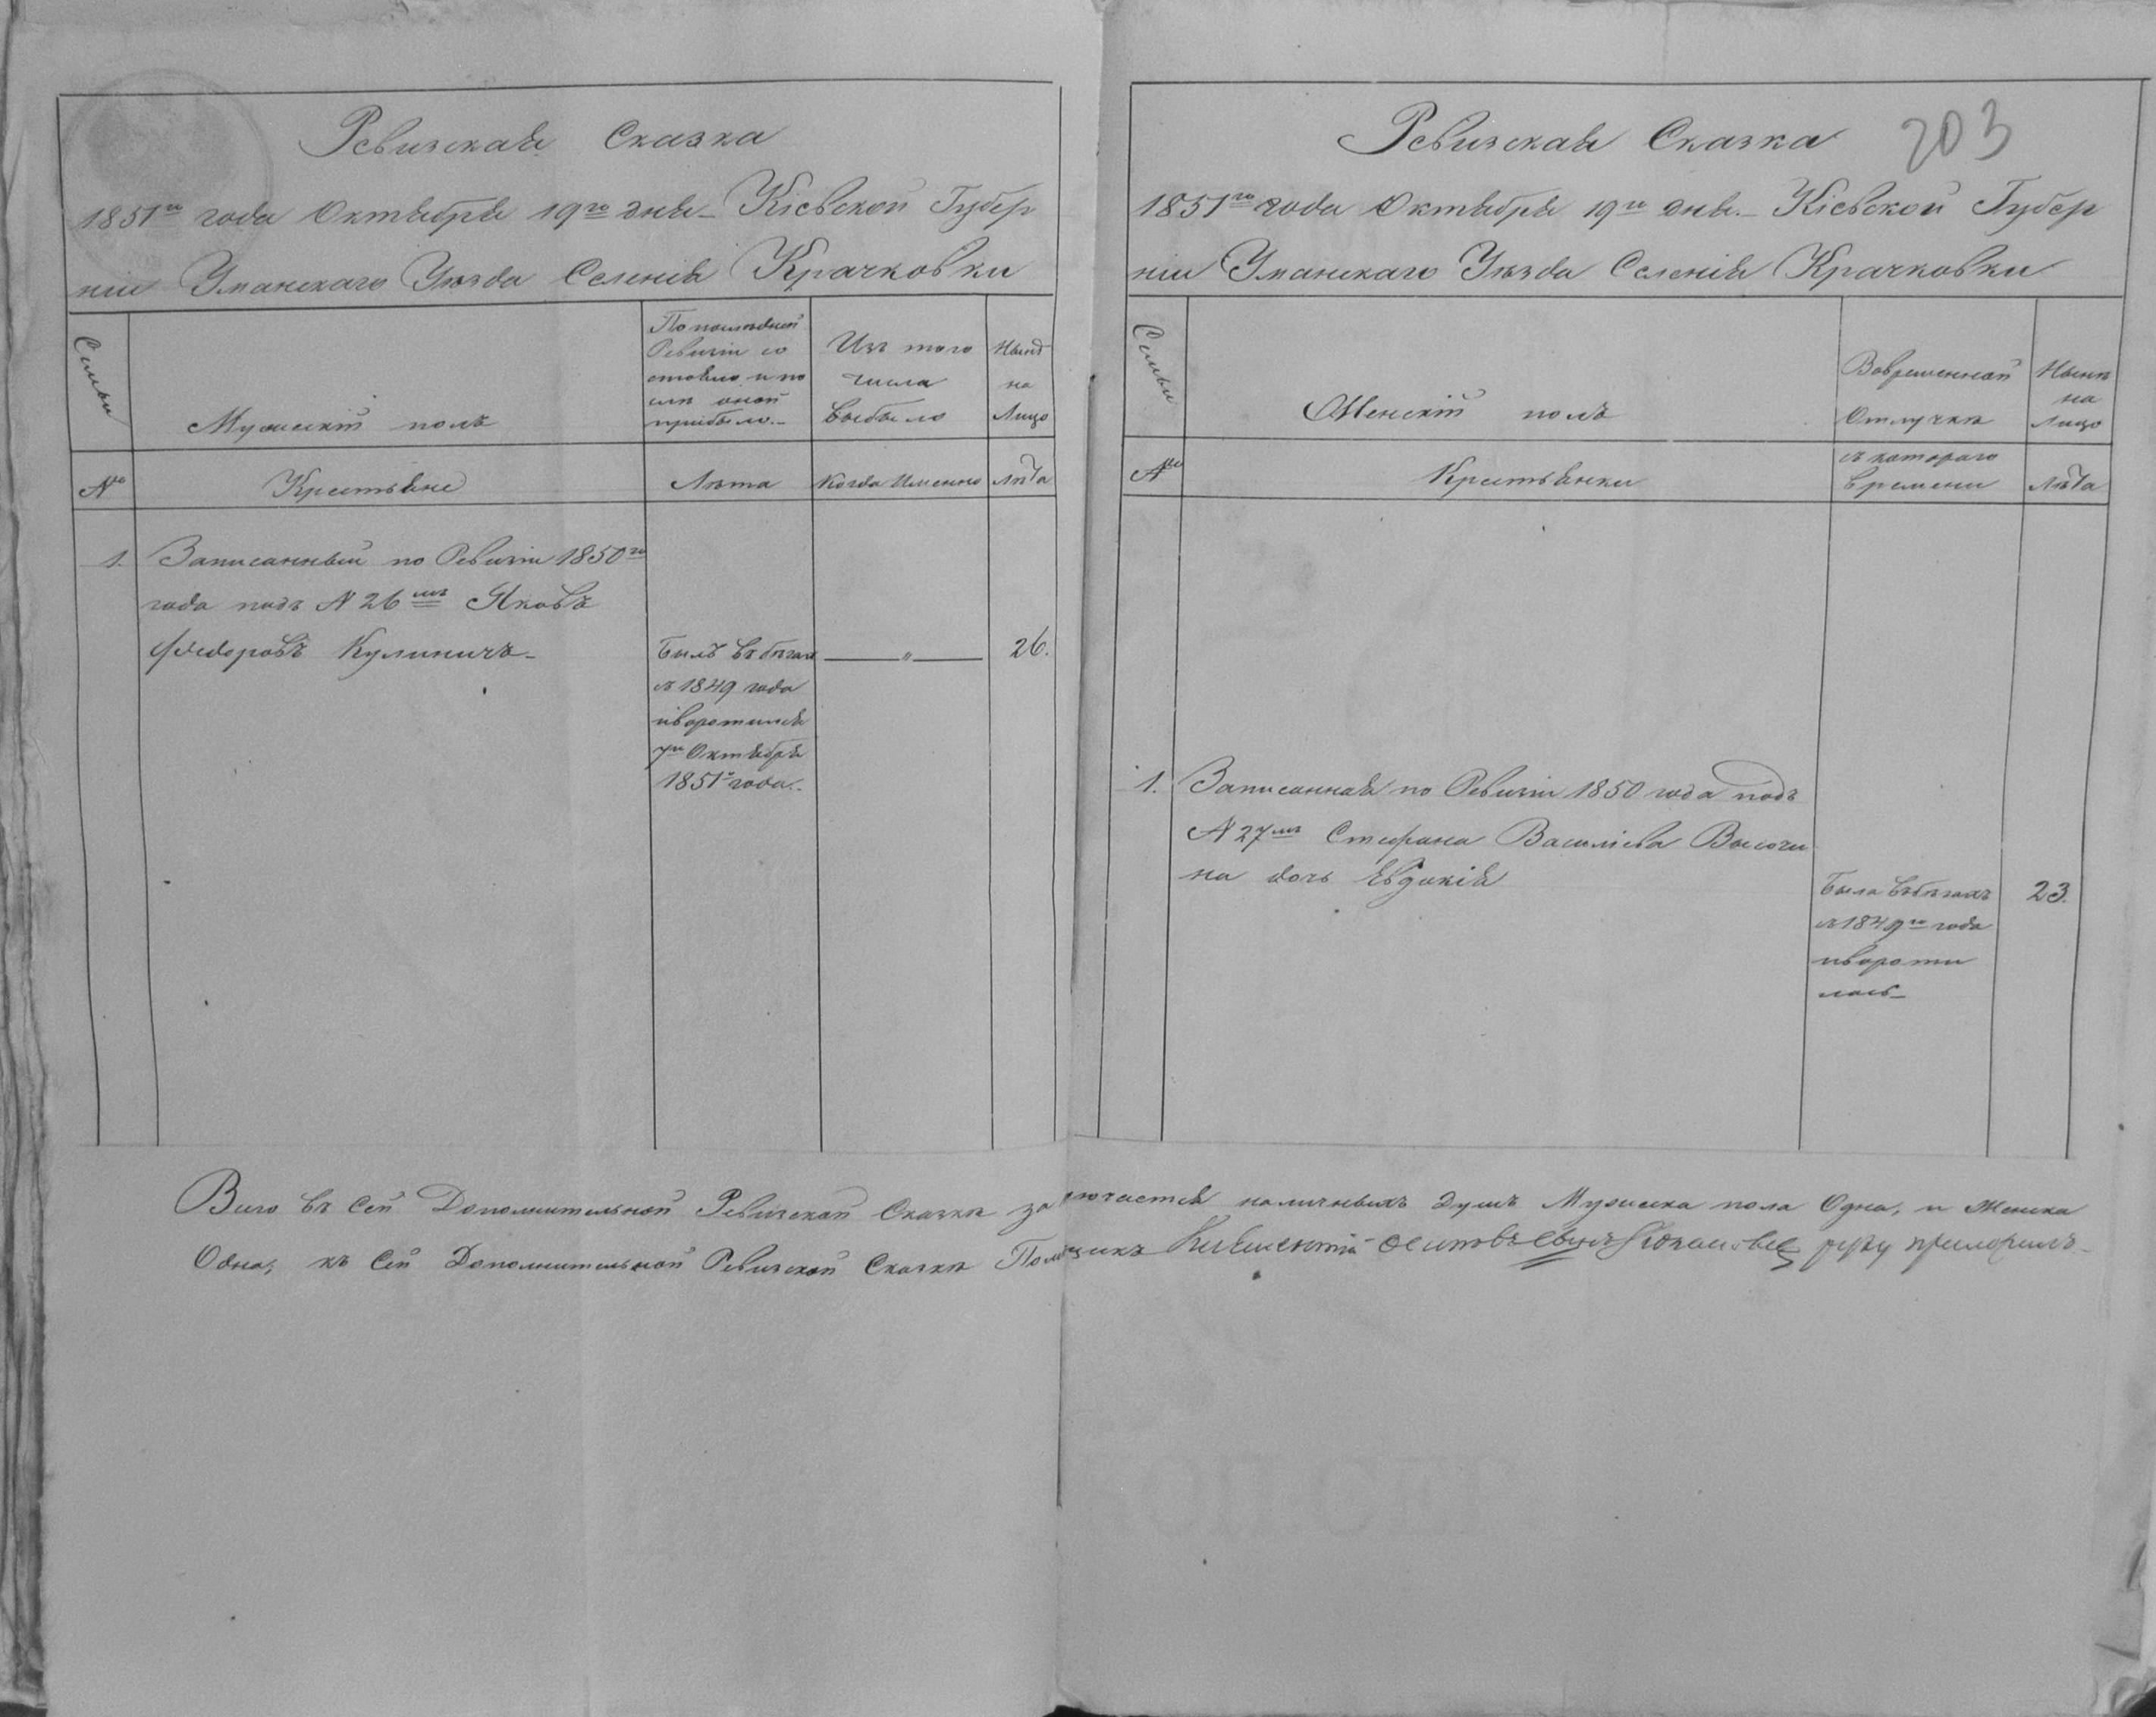 Ревизская Сказка
1851го года Октября 19го дня Кіевской Губер
ніи Уманскаго Уѣзда Селенія Крачковки
Семьи
Мужескій полъ
По послѣдней
Ревизіи со
стояло и по
слѣ оной
прибыло.
Изъ того
числа
выбыло
Нынѣ
на
Лицо
№
Крестьяне
Лѣта
Когда Именно
Лѣта
1. Записанный по Ревизіи 1850го
года подъ N 26мъ Яковъ
Федоровъ Кулиничъ
Былъ въ бѣгахъ
съ 1849 года
и воротился
7го Октября
1851го года.
"
26.
Ревизская Сказка
203
1851го года Октября 19го дня. Кіевской Губер
ніи Уманскаго Уѣзда Селенія Крачковки
Семьи
Женскій полъ
Во временной
Отлучкѣ
Нынѣ
на
Лицо
№
Крестьянки
съ котораго
времени
Лѣта
1. Записанная по Ревизіи 1850 года подъ
N 27мъ Стефана Василіева Высочи
на дочь Евдокія
Была въ бѣгахъ
съ 1849го года
и вороти
лась
23.
Всего въ сей Дополнительной Ревизской Сказкѣ заключается наличныхъ душъ Мужеска пола Одна, и Женска
Одна, къ сей Дополнительной Ревизской Сказкѣ Помѣщикъ Осиповъ сынъ руку приложилъ